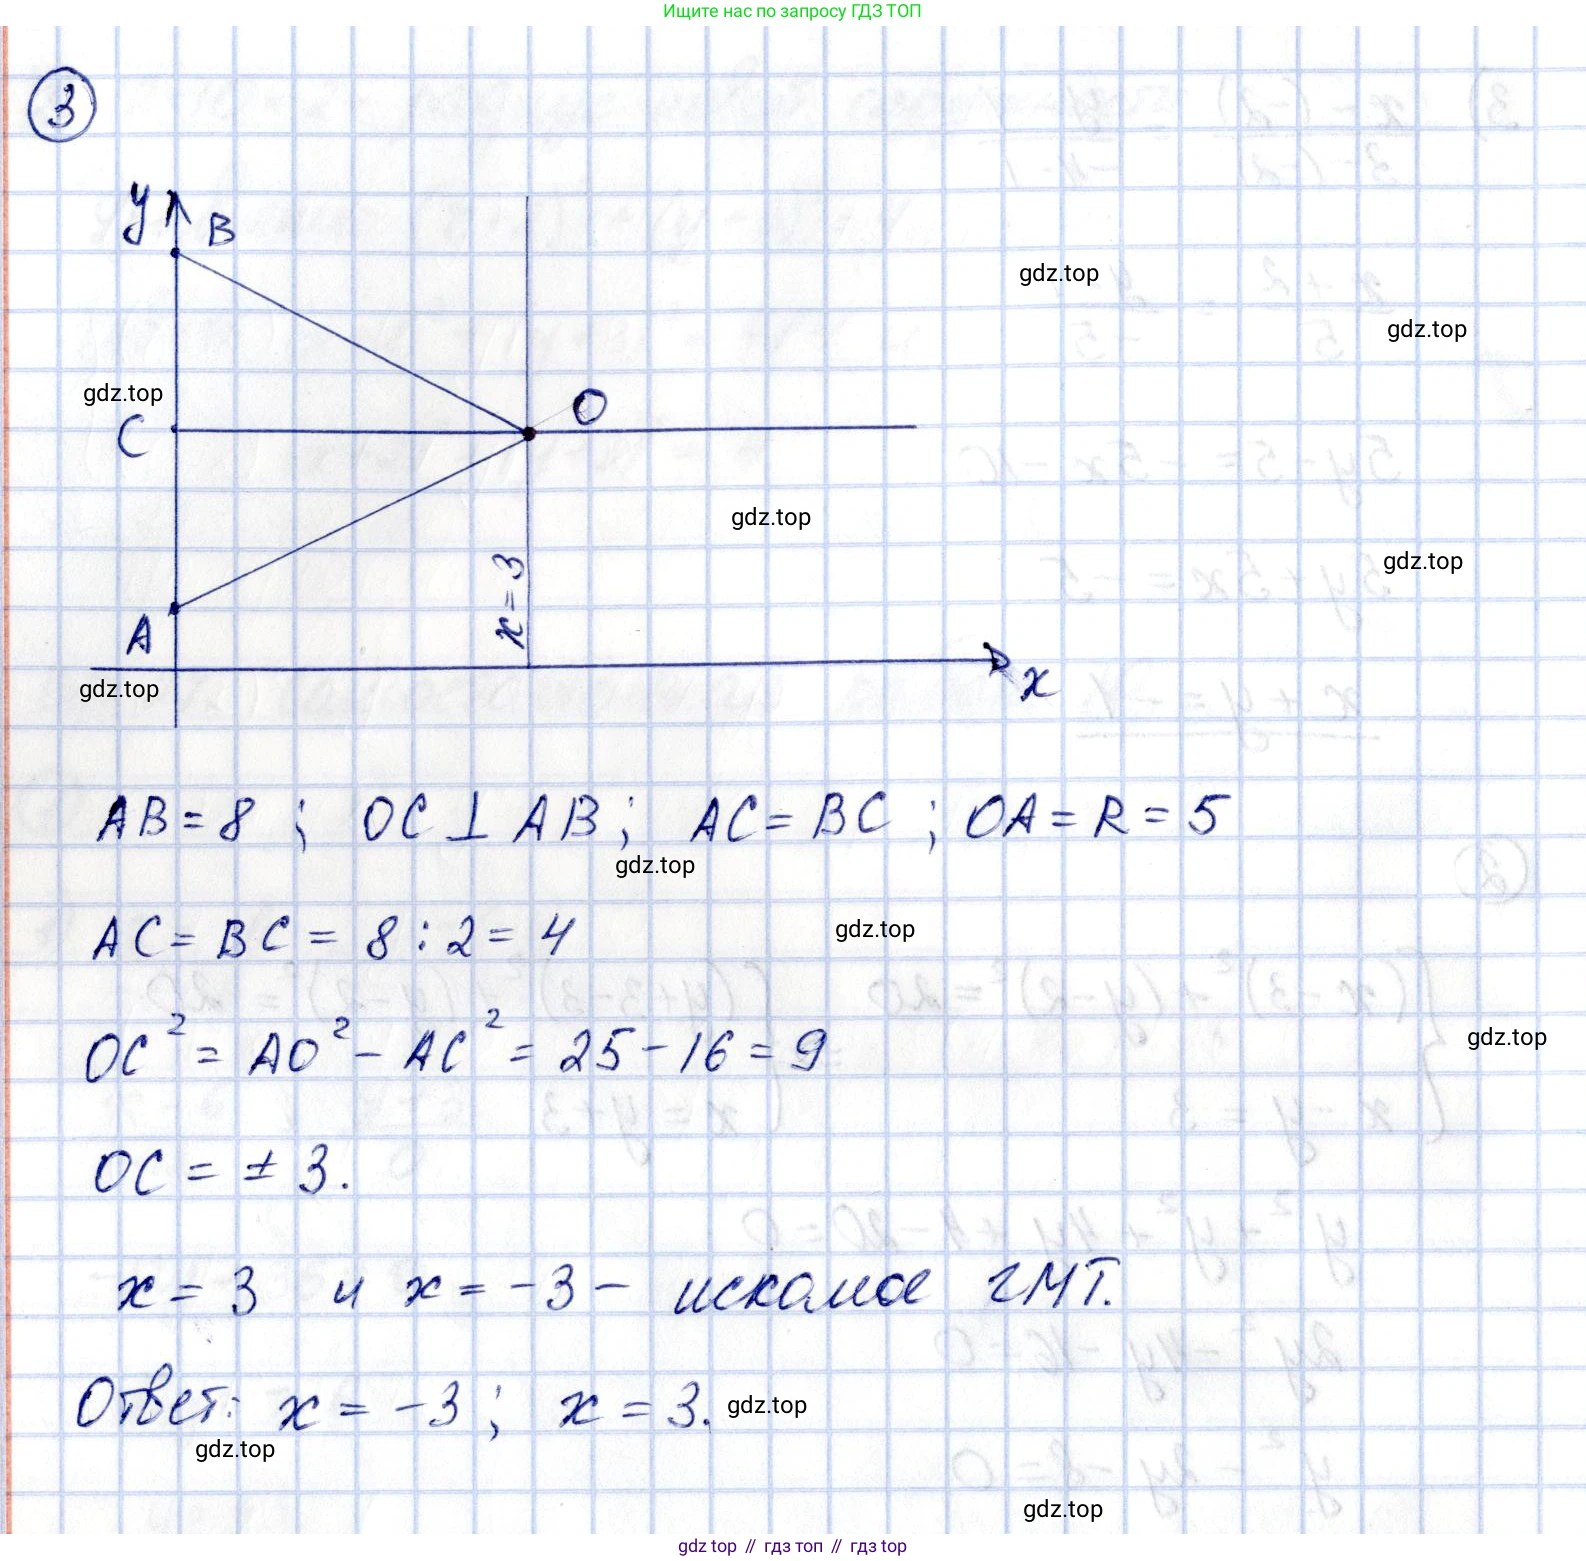 Ищите нас по запросу ГДЗ ТОП
3
y
B
gdz.top
gdz.top
gdz.top
C
O
gdz.top
gdz.top
x = 3
A
gdz.top
x
AB = 8 ; OC ⊥ AB ; AC = BC ; OA = R = 5
gdz.top
AC = BC = 8 : 2 = 4
gdz.top
OC² = AO² – AC² = 25 – 16 = 9
gdz.top
OC = ± 3.
x = 3 и x = –3 – искомое ГМТ.
Ответ: x = –3 ; x = 3.
gdz.top
gdz.top
gdz.top
gdz.top // гдз топ // гдз top